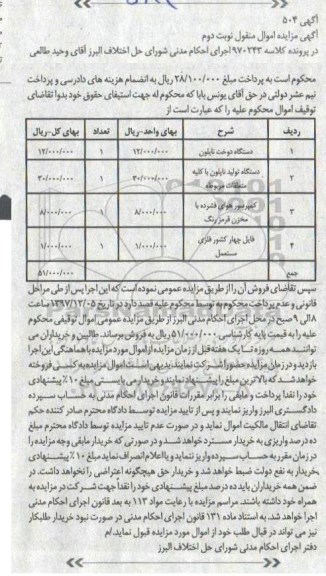 آگهی ۵۰۴
آگهی مزایده اموال منقول نوبت دوم
در پرونده کلاسه ۹۷۰۲۴۳ اجرای احکام مدنی شورای حل اختلاف البرز آقای وحید طالعی
محکوم است به پرداخت مبلغ ۲۸/۱۰۰/۰۰۰ ریال به انضمام هزینه های دادرسی و پرداخت
نیم عشر دولتی در حق آقای یونس بابا که محکوم له جهت استیفای حقوق خود بدوا تقاضای
توقیف اموال محکوم علیه را که عبارت است از
ردیف شرح بهای واحد-ریال تعداد بهای کل-ریال
۱ دستگاه دوخت نایلون ۱۲/۰۰۰/۰۰۰ ۱ ۱۲/۰۰۰/۰۰۰
۲ دستگاه تولید نایلون با کلیه متعلقات مربوطه ۳۰/۰۰۰/۰۰۰ ۱ ۳۰/۰۰۰/۰۰۰
۳ کمپرسور هوای فشرده با مخزن قرمز رنگ ۸/۰۰۰/۰۰۰ ۱ ۸/۰۰۰/۰۰۰
۴ فایل چهار کشور فلزی مستعمل ۱/۰۰۰/۰۰۰ ۱ ۱/۰۰۰/۰۰۰
جمع ۵۱/۰۰۰/۰۰۰
سپس تقاضای فروش آن را از طریق مزایده عمومی نموده است که این اجرا پس از طی مراحل
قانونی و عدم پرداخت محکوم به توسط محکوم علیه قصد دارد در تاریخ ۱۳۹۷/۱۲/۰۵ ساعت
۸ الی ۹ صبح در محل اجرای احکام مدنی البرز از طریق مزایده عمومی اموال توقیفی محکوم
علیه را به قیمت پایه کارشناسی ۵۱/۰۰۰/۰۰۰ ریال به فروش برساند. طالبین و خریداران می
توانند همه روزه تا یک هفته قبل از زمان مزایده از اموال مورد مزایده با هماهنگی این اجرا
بازدید و در زمان مزایده حضور شرکت نمایند. بدیهی است اموال مزایده به کسی فروخته
خواهد شد که بالاترین مبلغ را پیشنهاد نماید و خریدار می بایستی مبلغ ۱۰٪ پیشنهادی
خود را نقدا پرداخت و مابقی را برابر مقررات قانون اجرای احکام مدنی به حساب سپرده
دادگستری البرز واریز نمایند و پس از تایید مزایده توسط دادگاه محترم صادر کننده حکم
تقاضای انتقال مالکیت اموال نماید و در صورت عدم تایید مزایده توسط دادگاه محترم مبلغ
ده درصد واریزی به خریدار مسترد خواهد شد و در صورتی که خریدار مابقی وجه مزایده را
در زمان مقرر به حساب سپرده واریز ننماید و یا اعلام انصراف نماید مبلغ ۱۰٪ پیشنهادی
خریدار به نفع دولت ضبط خواهد شد و خریدار حق هیچگونه اعتراضی را نخواهد داشت. در
ضمن همه خریداران باید ده درصد مبلغ پیشنهادی خود را نقدا جهت شرکت در مزایده به
همراه خود داشته باشند. مراسم مزایده با رعایت مواد ۱۱۳ به بعد قانون اجرای احکام مدنی
اجرا خواهد شد. به استناد ماده ۱۳۱ قانون اجرای احکام مدنی در صورت نبود خریدار طلبکار
نیز می تواند در قبال طلب خود از اموال مورد مزایده قبول نماید./م
دفتر اجرای احکام مدنی شورای حل اختلاف البرز